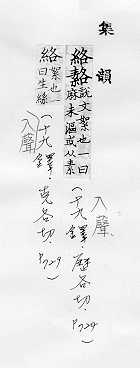 集韻
絡䋾說文絮也一曰
麻未漚或从素
入聲
(十九鐸.歷各切.
P.724)
絡絮也一
曰生絲
入聲
(十九鐸.克各切.
P.729)